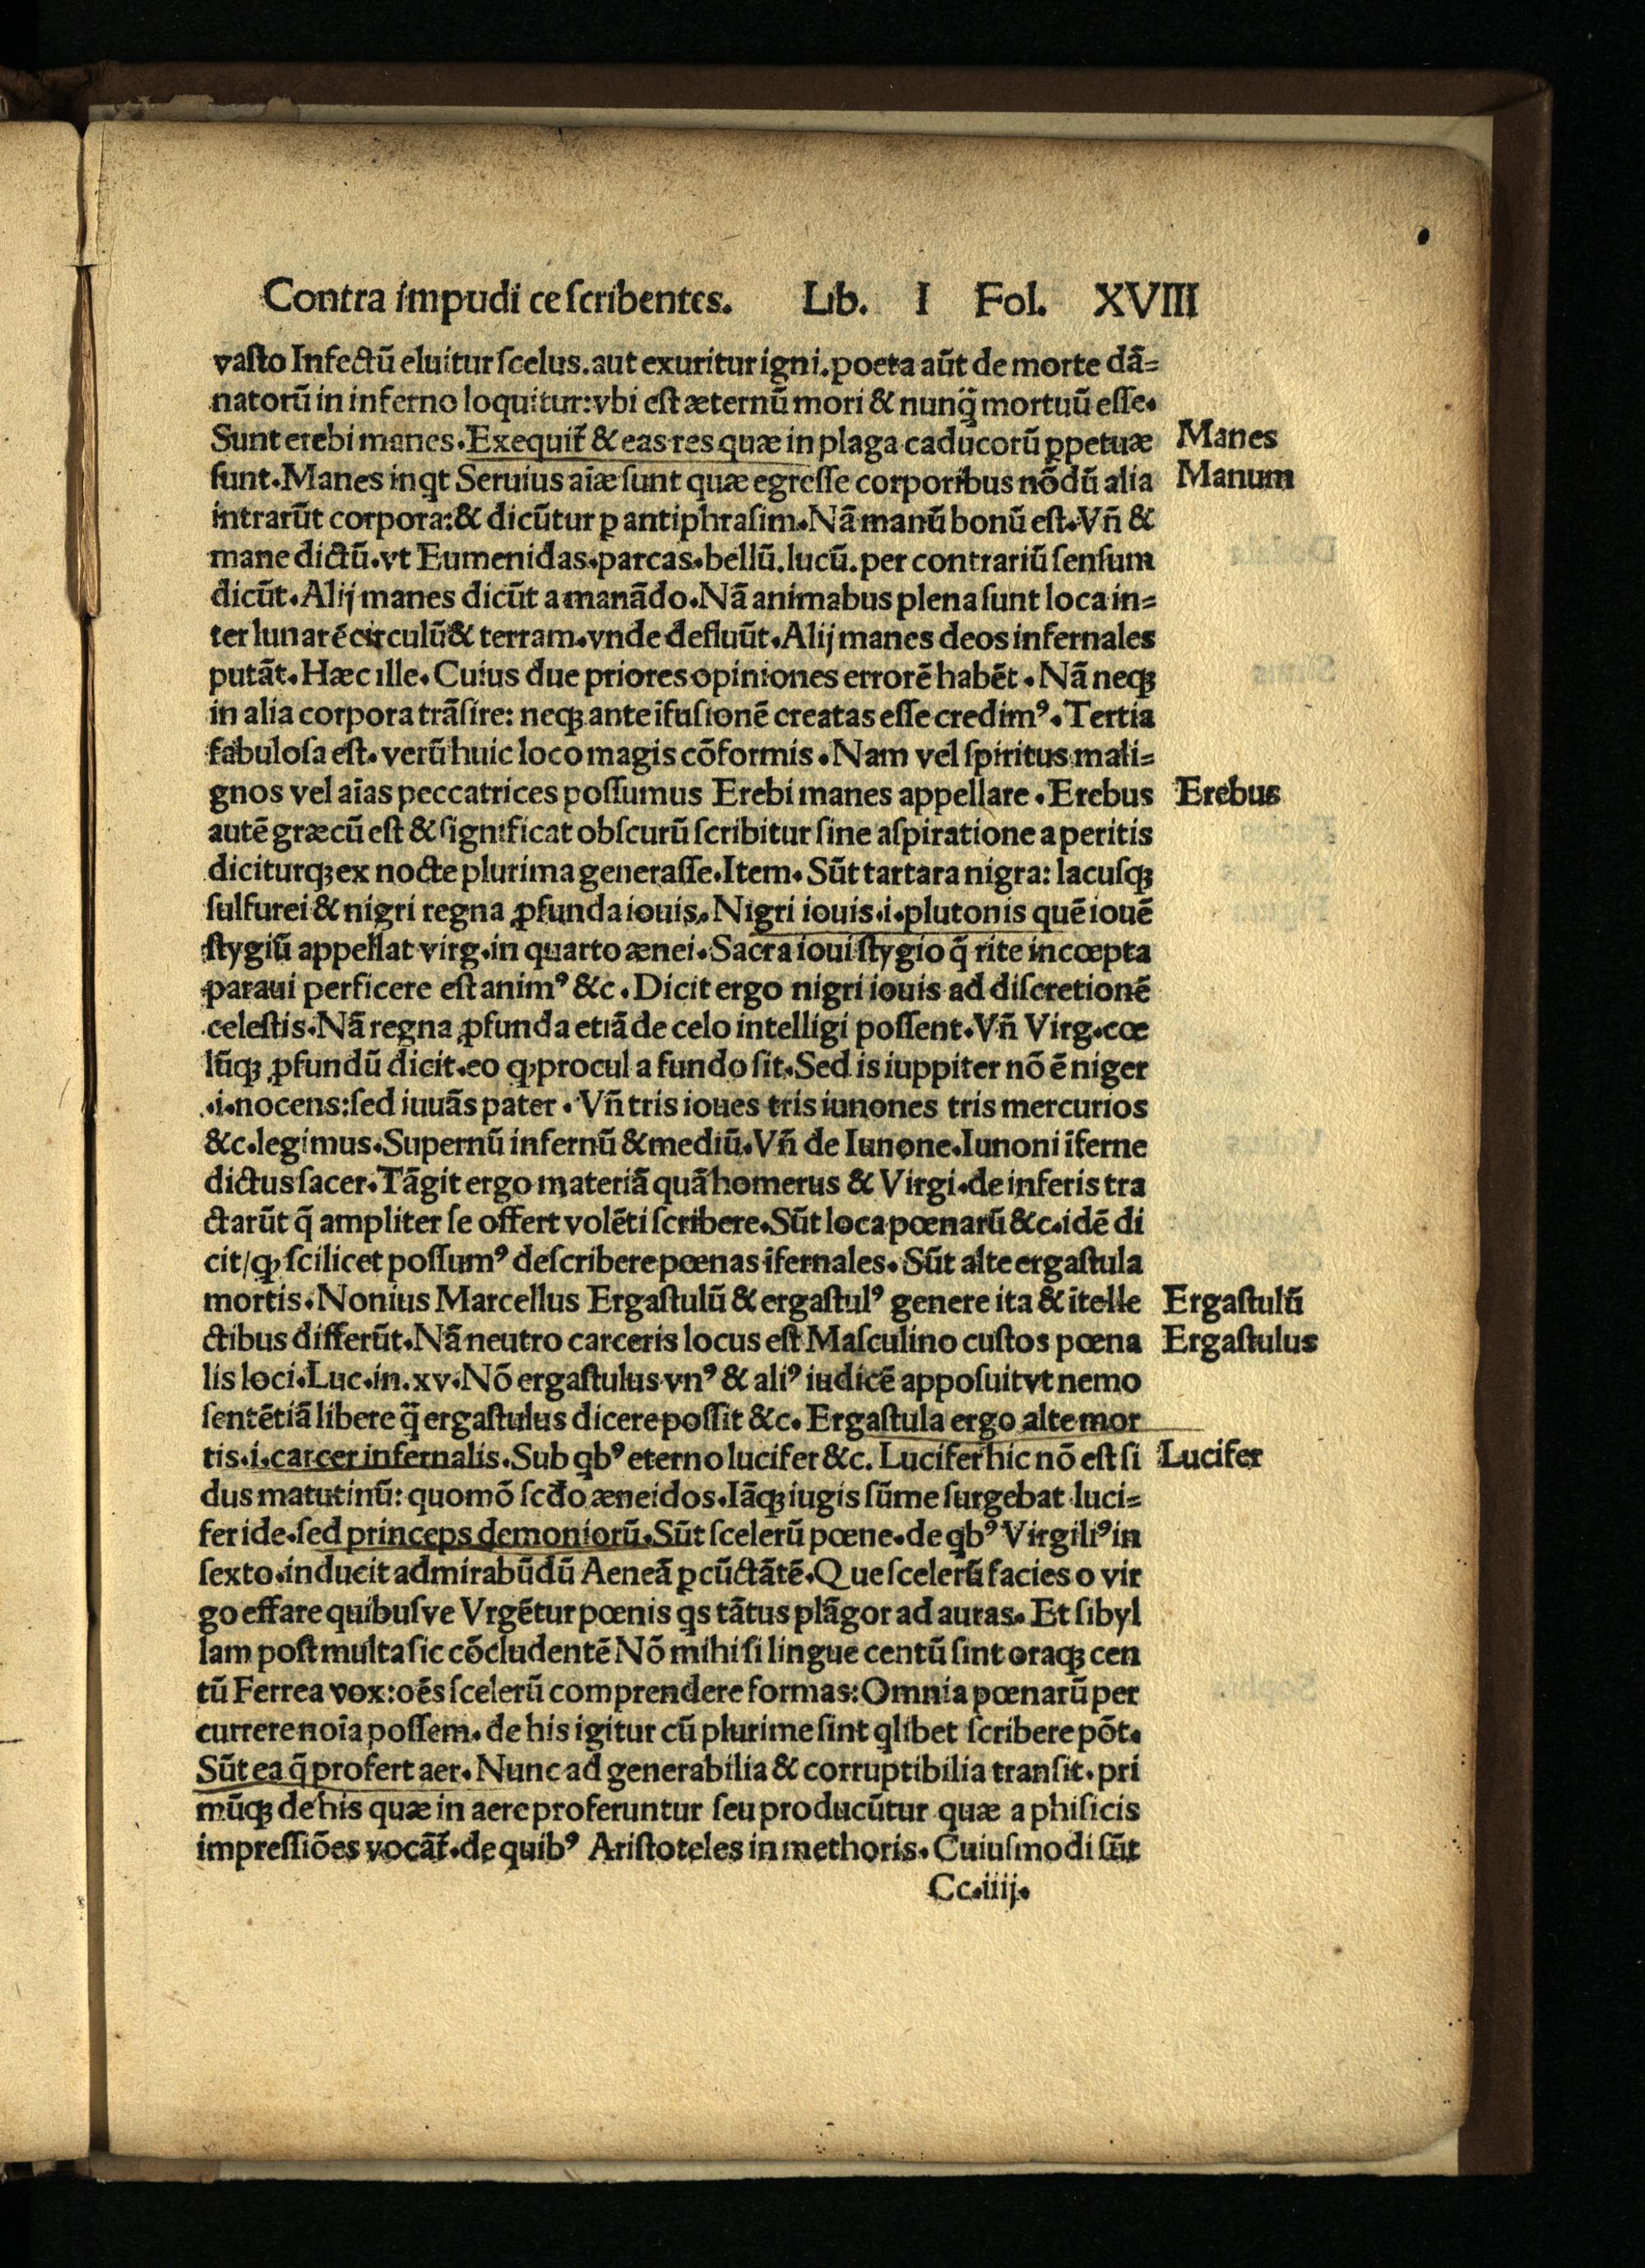 Contra impudi ce ſcribentes. Lib. I Fol. XVIII
vaſto Infectū eluitur ſcelus. aut exuritur igni. poeta aūt de morte dā=
natorū in inferno loquitur: vbi eſt æternū mori & nunq̄ mortuū eſſe.
Sunt erebi manes. Exequit̄ & eas res quæ in plaga caducorū ꝑpetuæ
Manes
ſunt. Manes inqt Seruius aīæ ſunt quæ egreſſe corporibus nōdū alia
Manum
intrarūt corpora: & dicūtur ꝑ antiphraſim. Nā manū bonū eſt. Vñ &
mane dictū. vt Eumenidas. parcas. bellū. lucū. per contrariū ſenſum
dicūt. Alij manes dicūt a manādo. Nā animabus plena ſunt loca in=
ter lunarē circulū & terram. vnde defluūt. Alij manes deos infernales
putāt. Hæc ille. Cuius due priores opiniones errorē habēt. Nā neqꝫ
in alia corpora trāſire: neqꝫ ante īfuſionē creatas eſſe credimꝰ. Tertia
fabuloſa eſt. verū huic loco magis cōformis. Nam vel ſpiritus mali=
gnos vel aīas peccatrices poſſumus Erebi manes appellare. Erebus
Erebus
autē græcū eſt & ſignificat obſcurū ſcribitur ſine aſpiratione a peritis
diciturqꝫ ex nocte plurima generaſſe. Item. Sūt tartara nigra: lacuſqꝫ
ſulfurei & nigri regna ꝓfunda iouis. Nigri iouis .i. plutonis quē iouē
ſtygiū appellat virg. in quarto ænei. Sacra ioui ſtygio q̄ rite incœpta
paraui perficere eſt animꝰ &c. Dicit ergo nigri iouis ad diſcretionē
celeſtis. Nā regna ꝓfunda etiā de celo intelligi poſſent. Vñ Virg. cœ
lūqꝫ ꝓfundū dicit. eo ꝙ procul a fundo ſit. Sed is iuppiter nō ē niger
.i. nocens: ſed iuuās pater. Vñ tris ioues tris iunones tris mercurios
&c. legimus. Supernū infernū & mediū. Vñ de Iunone. Iunoni īferne
dictus ſacer. Tāgit ergo materiā quā homerus & Virgi. de inferis tra
ctarūt q̄ ampliter ſe offert volēti ſcribere. Sūt loca pœnarū &c. idē di
cit/ ꝙ ſcilicet poſſumꝰ deſcribere pœnas īfernales. Sūt alte ergaſtula
mortis. Nonius Marcellus Ergaſtulū & ergaſtulꝰ genere ita & ītelle
Ergaſtulū
ctibus differūt. Nā neutro carceris locus eſt Maſculino cuſtos pœna
Ergaſtulus
lis loci. Luc. in. xv. Nō ergaſtulus vnꝰ & aliꝰ iudicē appoſuit vt nemo
ſentētiā libere q̄ ergaſtulus dicere poſſit &c. Ergaſtula ergo alte mor
tis .i. carcer infernalis. Sub qbꝰ eterno lucifer &c. Lucifer hic nō eſt ſi
Lucifer
dus matutinū: quomō ſcd̄o æneidos. Iāqꝫ iugis ſūme ſurgebat luci=
fer ide. ſed princeps demoniorū. Sūt ſcelerū pœne. de qbꝰ Virgiliꝰ in
ſexto. inducit admirabūdū Aeneā ꝑcūctātē. Que ſcelerū facies o vir
go effare quibuſve Vrgētur pœnis qs tātus plāgor ad auras. Et ſibyl
lam poſt multa ſic cōcludentē Nō mihi ſi lingue centū ſint oraqꝫ cen
tū Ferrea vox: oēs ſcelerū comprendere formas: Omnia pœnarū per
currere noīa poſſem. de his igitur cū plurime ſint qlibet ſcribere pōt.
Sūt ea q̄ profert aer. Nunc ad generabilia & corruptibilia tranſit. pri
mūqꝫ de his quæ in aere proferuntur ſeu producūtur quæ a phiſicis
impreſſiōes vocāt̄. de quibꝰ Ariſtoteles in methoris. Cuiuſmodi ſūt
Cc.iiij.